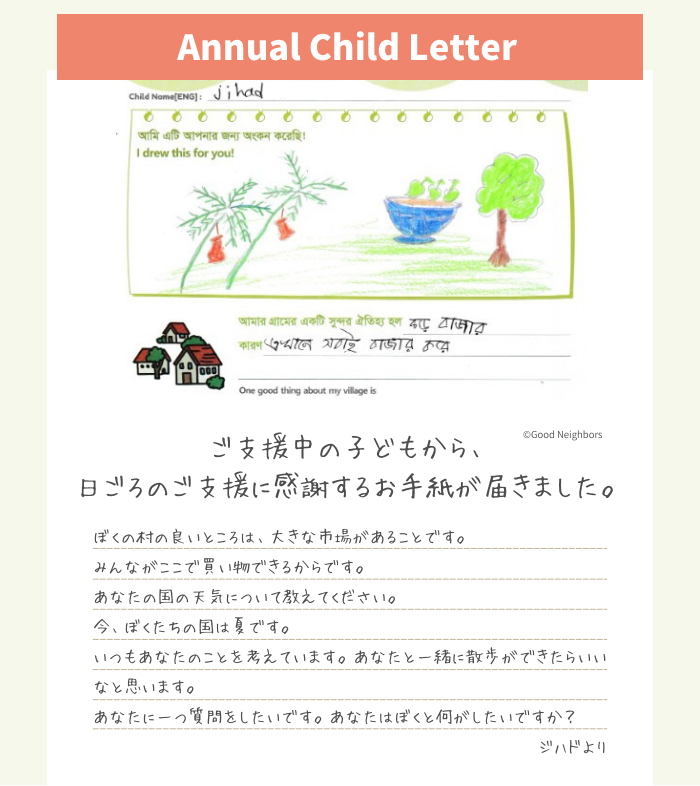 Annual Child Letter
Child Name[ENG] : jihad
আমি এটি আপনার জন্য অংকন করেছি!
I drew this for you!
আমার গ্রামের একটি সুন্দর ঐতিহ্য হল বাজার
কারণ এখানে সবাই বাজার করে
One good thing about my village is
©Good Neighbors
ご支援中の子どもから、
日ごろのご支援に感謝するお手紙が届きました。
ぼくの村の良いところは、大きな市場があることです。
みんながここで買い物できるからです。
あなたの国の天気について教えてください。
今、ぼくたちの国は夏です。
いつもあなたのことを考えています。あなたと一緒に散歩ができたらいい
なと思います。
あなたに一つ質問をしたいです。あなたはぼくと何がしたいですか？
ジハドより